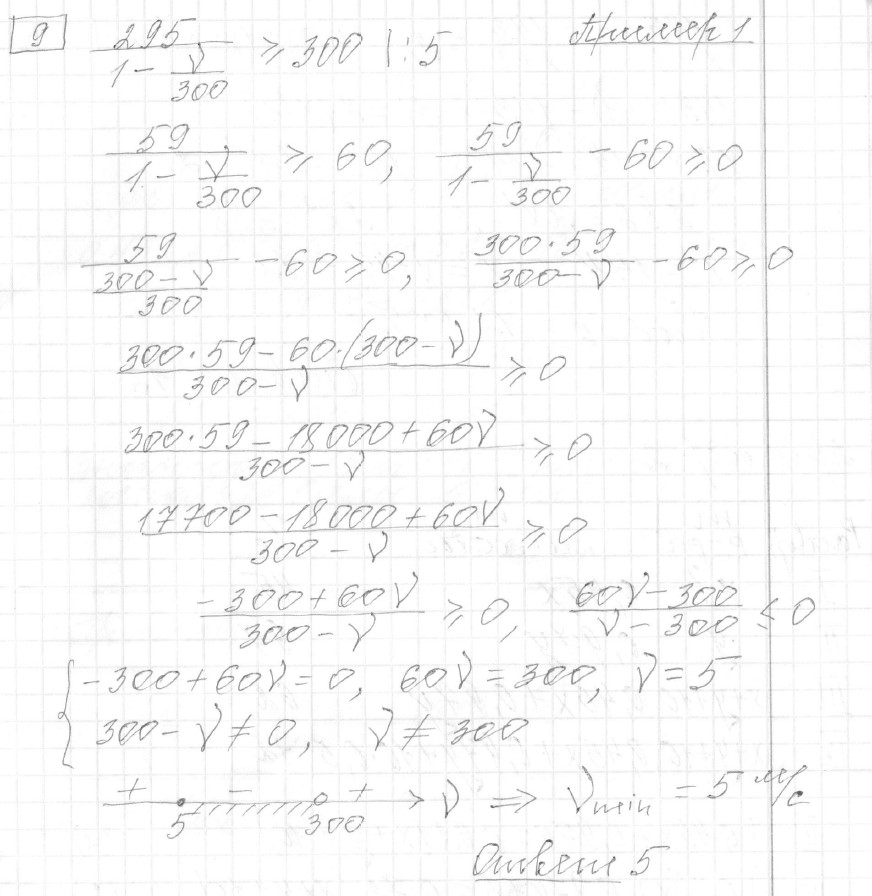 9 295/(1 - ν/300) ≥ 300 | : 5 Пример 1
59/(1 - ν/300) ≥ 60, 59/(1 - ν/300) - 60 ≥ 0
59/((300 - ν)/300) - 60 ≥ 0, (300·59)/(300 - ν) - 60 ≥ 0
(300·59 - 60·(300 - ν))/(300 - ν) ≥ 0
(300·59 - 18000 + 60ν)/(300 - ν) ≥ 0
(17700 - 18000 + 60ν)/(300 - ν) ≥ 0
(-300 + 60ν)/(300 - ν) ≥ 0, (60ν - 300)/(ν - 300) ≤ 0
{ -300 + 60ν = 0, 60ν = 300, ν = 5
300 - ν ≠ 0, ν ≠ 300
+ - + ν ⇒ νmin = 5 м/с
5 300
Ответ 5